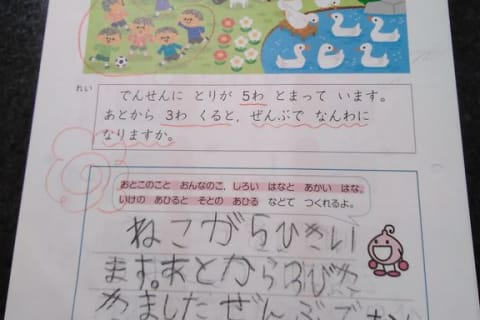 れい
でんせんに とりが 5わ とまって います。
あとから 3わ くると、ぜんぶで なんわに
なりますか。
おとこのこと おんなのこ、しろい はなと あかい はな、
いけの あひると そとの あひる などで つくれるよ。
ねこがらひきい
ます。あとから3びき
きましたぜんぶで